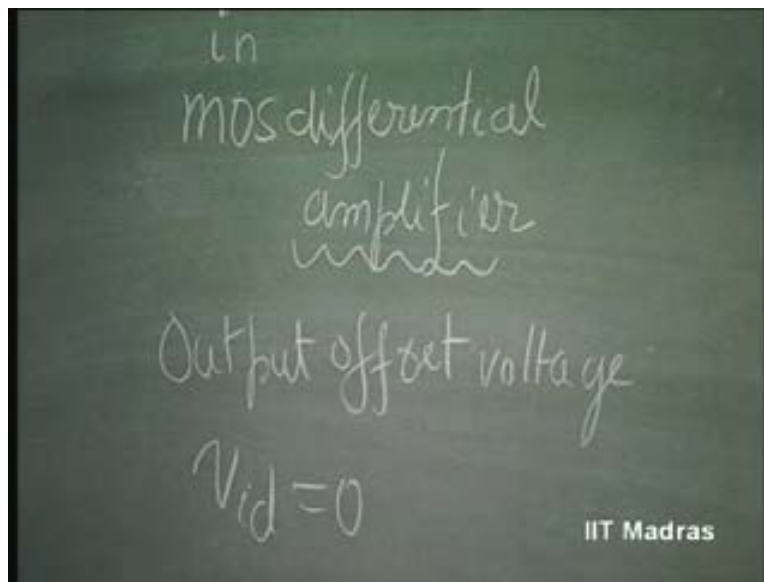 in
mos differential
amplifier
Output offset voltage
Vid = 0
IIT Madras